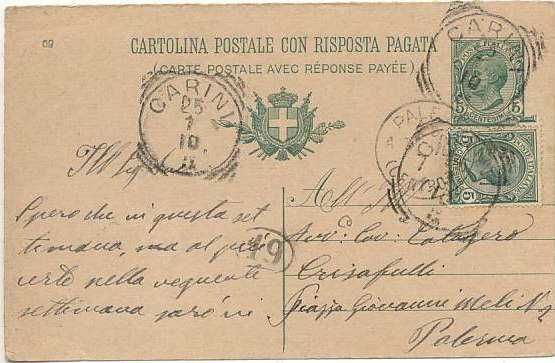 09
CARTOLINA POSTALE CON RISPOSTA PAGATA
(CARTE POSTALE AVEC RÉPONSE PAYÉE)
CARINI
25
1
10
CARINI
10
POSTE ITALIANE
5
CENTESIMI
5
PALE
5
5
Ill
Spero che in questa set
timana, ma al più
certo nella seguente
settimana sarò in
19
All'
Avv: Cav: Calogero
Crisafulli
Piazza Giovanni Meli N 2
Palermo